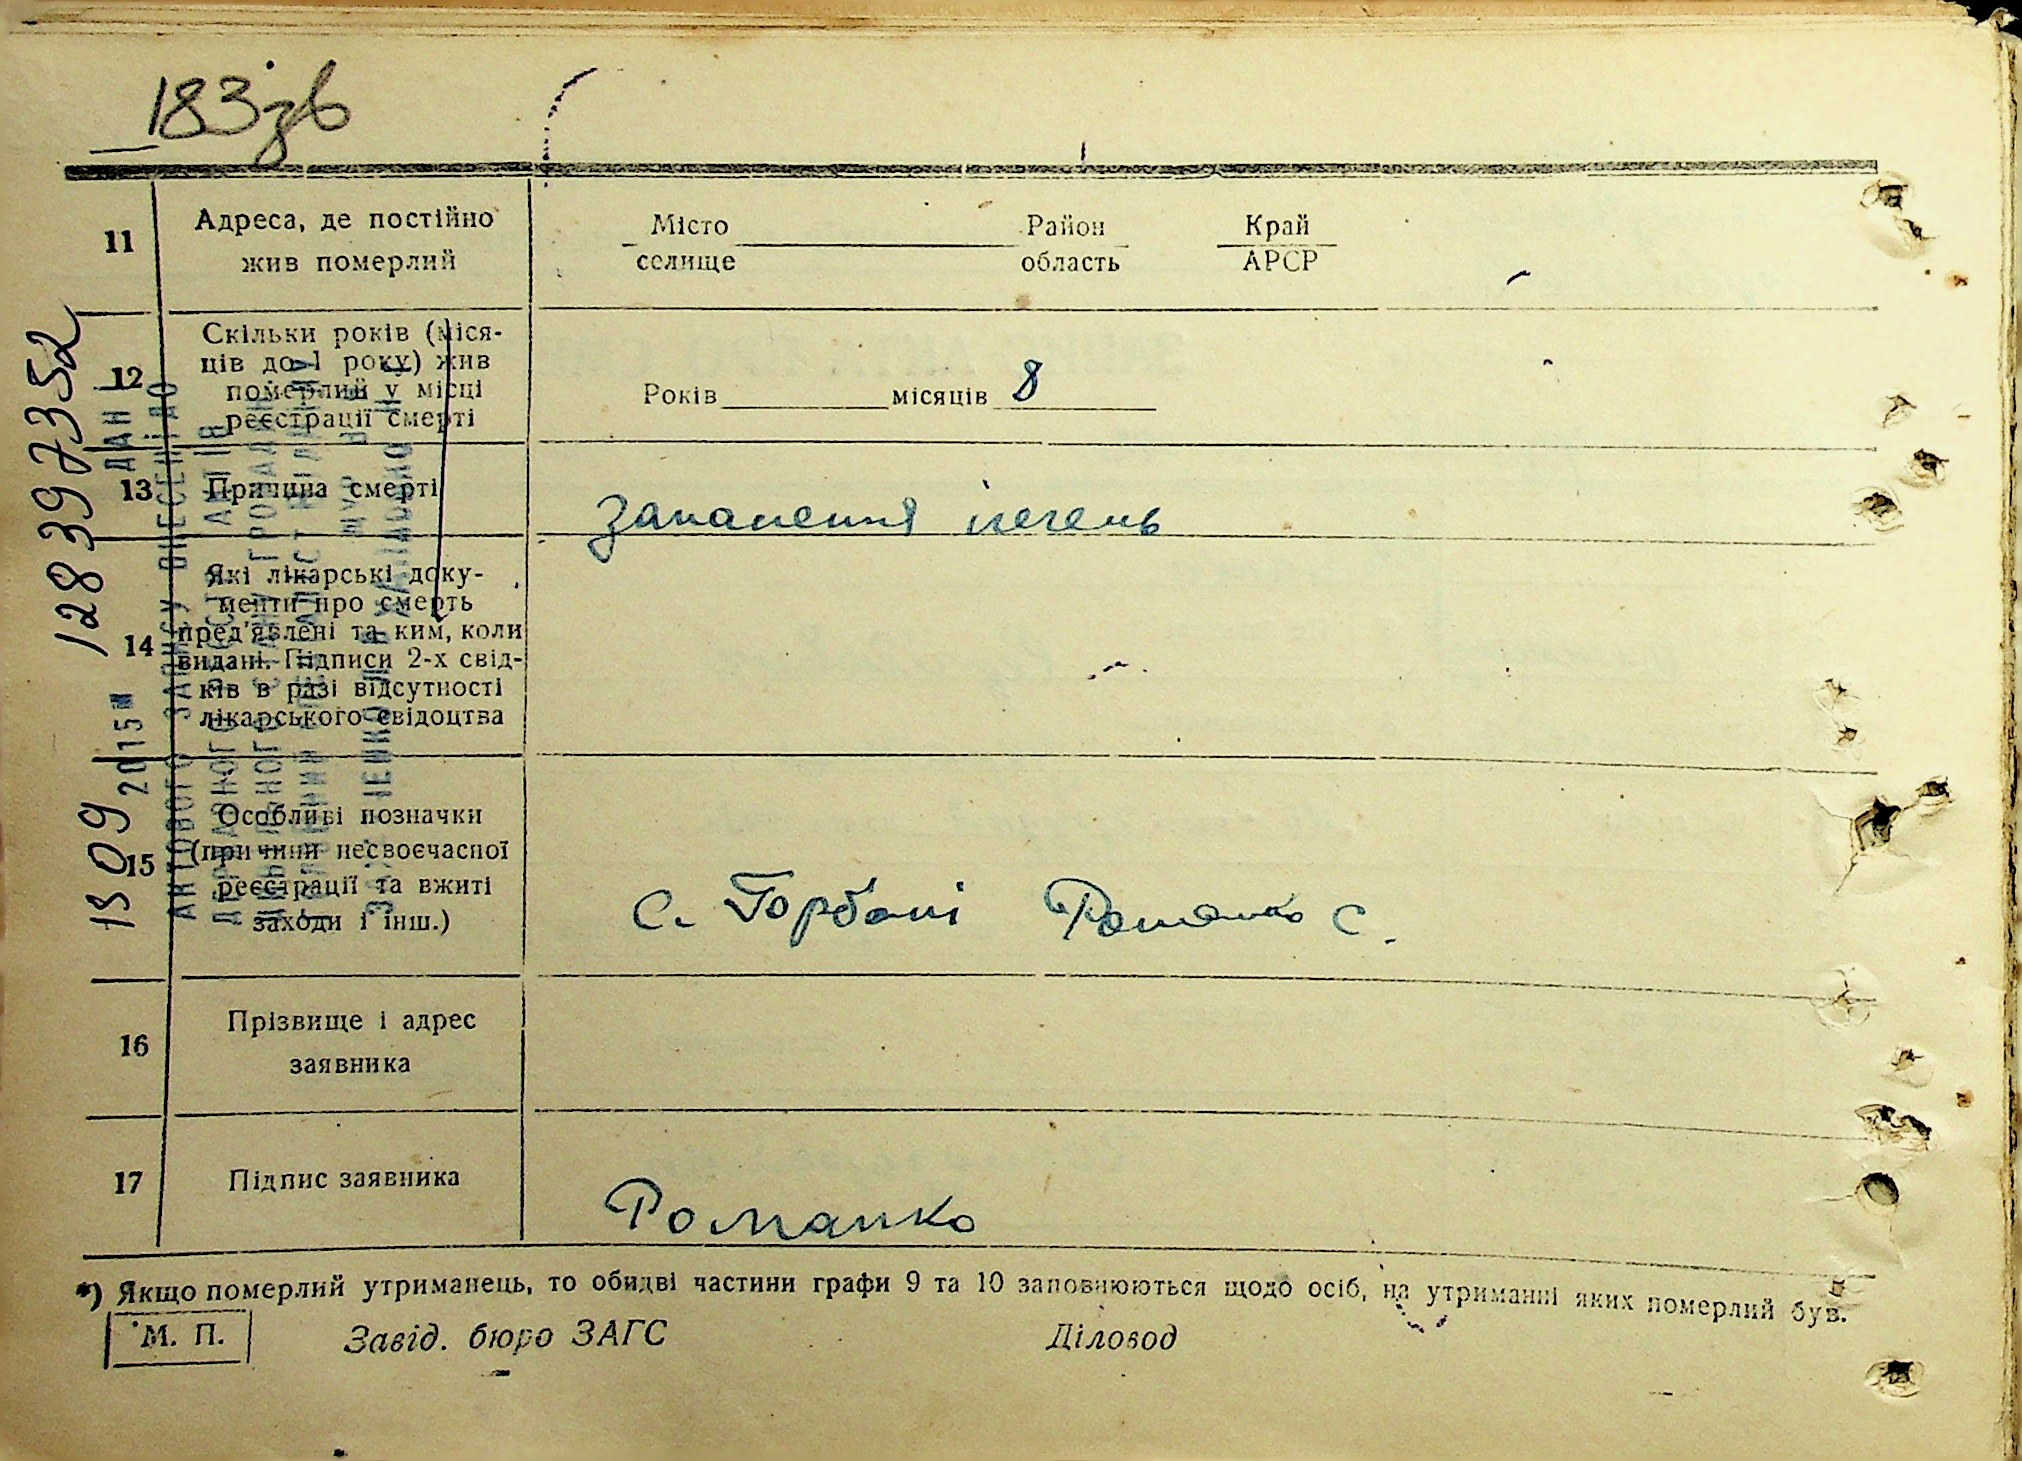 183зв
11
Адреса, де постійно
жив померлий
Місто Район Край
селище область АРСР
12
Скільки років (міся-
ців до 1 року) жив
померлий у місці
реєстрації смерті
Років місяців 8
13
Причина смерті
Запалення печень
14
Які лікарські доку-
менти про смерть
пред'явлені та ким, коли
видані. Підписи 2-х свід-
ків в разі відсутності
лікарського свідоцтва
15
Особливі позначки
(причини несвоєчасної
реєстрації та вжиті
заходи і інш.)
с. Горбані Романко С.
16
Прізвище і адрес
заявника
17
Підпис заявника
Романко
*) Якщо померлий утриманець, то обидві частини графи 9 та 10 заповнюються щодо осіб, на утриманні яких померлий був.
М. П.
Завід. бюро ЗАГС
Діловод
13 09 2015 128397352
ДАНІ
АКТОВОГО ЗАПИСУ ВНЕСЕНІ ДО